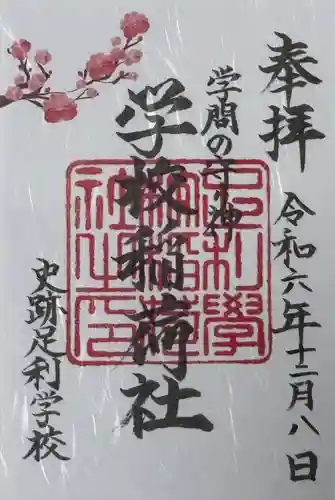 奉拝
令和六年十二月八日
学問の守り神
学校稲荷社
足利學校稲荷社之印
史跡足利学校